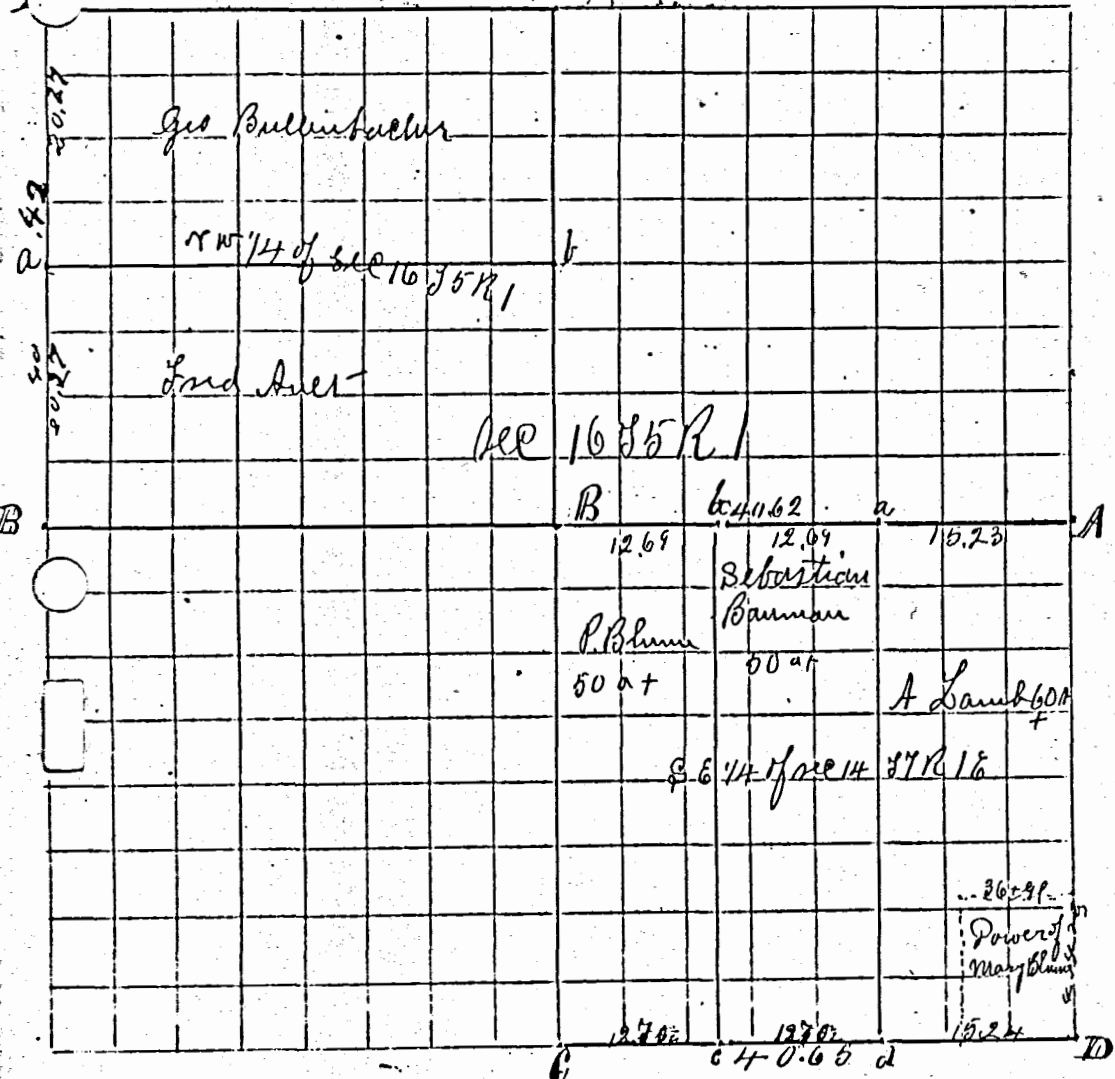 20.27
Geo Bullenbacher
a.42
NW 1/4 of sec 16 T5 R1
b
40
20.27
Fred Auer
Sec 16 T5 R 1
B
B
b
40.62
a
A
12.69
12.69
15.23
Sebastian
Bauman
P. Blume
50 a+
50 a+
A Lamb 60A
+
S E 1/4 of sec 14 T7 R 1 E
Power of
Mary Blume
15.24
C
c
40.65
d
D